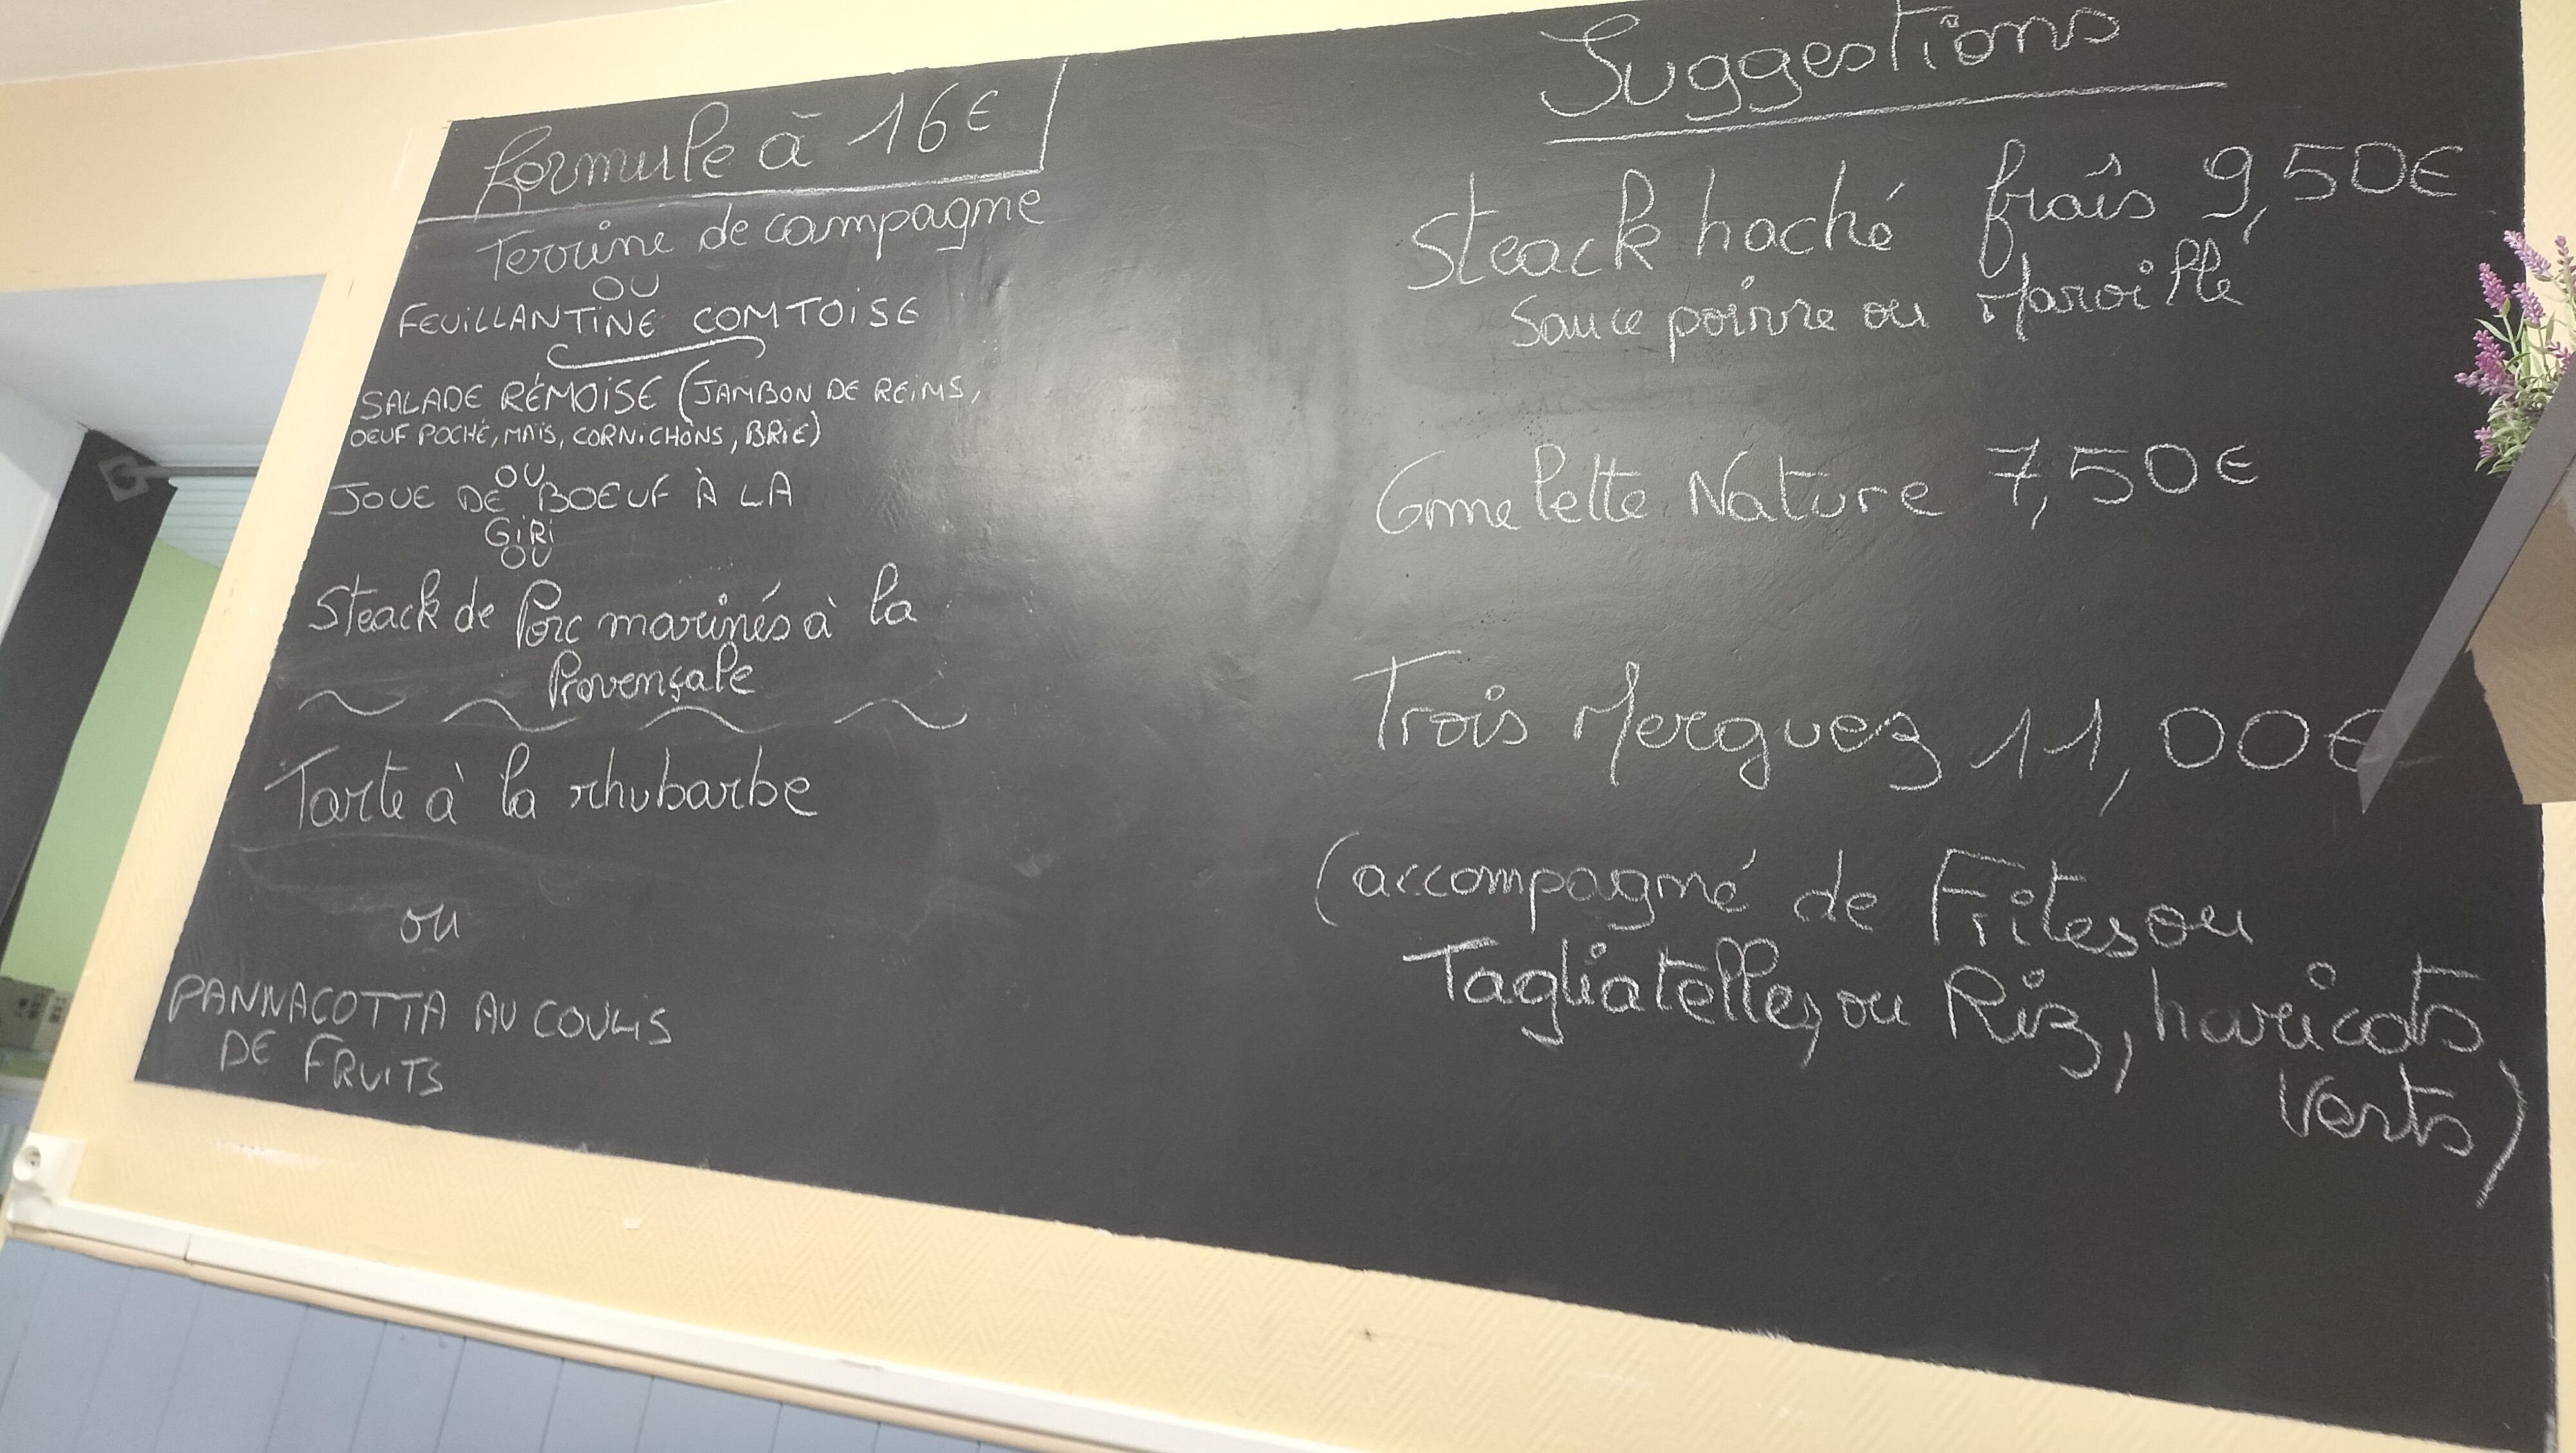 formule à 16€
Terrine de campagne
OU
FEUILLANTINE COMTOISE
SALADE RÉMOISE (JAMBON DE REIMS,
OEUF POCHÉ, MAIS, CORNICHONS, BRIE)
OU
JOUE DE BOEUF À LA
GIRI
OU
Steack de Porc marinés à la
Provençale
Tarte à la rhubarbe
ou
PANNACOTTA AU COULIS
DE FRUITS
Suggestions
Steack haché fraîs 9,50€
Sauce poivre ou Maroille
Omelette Nature 7,50€
Trois Merguez 11,00€
(accompagné de Frites ou
Tagliatelles, ou Riz, haricots
Verts)